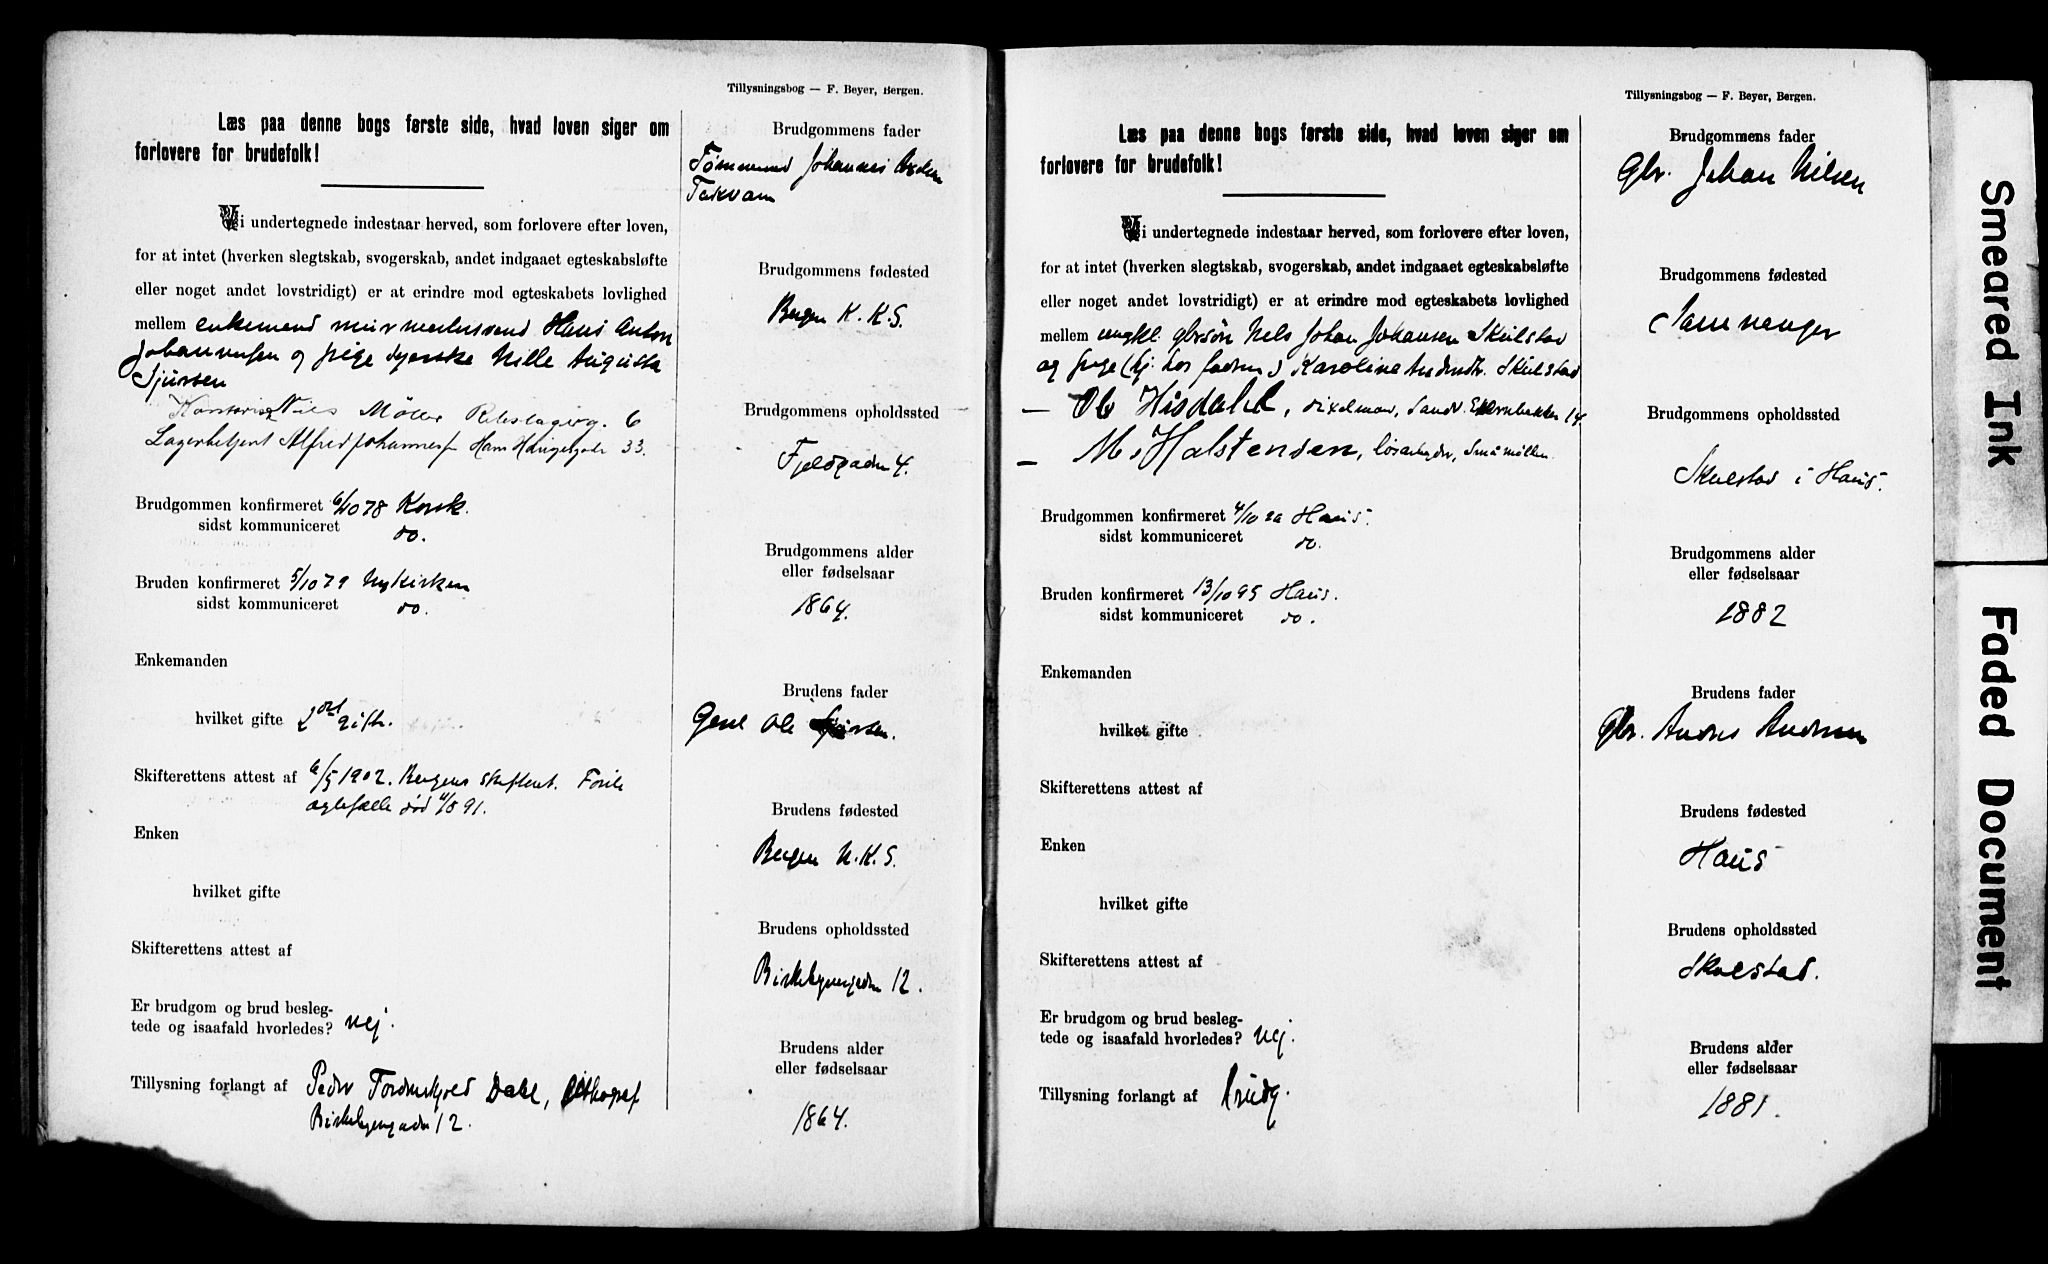 Tillysningsbog — F. Beyer, Bergen.
Læs paa denne bogs første side, hvad loven siger om
forlovere for brudefolk!
Vi undertegnede indestaar herved, som forlovere efter loven,
for at intet (hverken slegtskab, svogerskab, andet indgaaet egteskabsløfte
eller noget andet lovstridigt) er at erindre mod egteskabets lovlighed
mellem enkemand murmestersvend Hans Anton
Johannesen og pige syerske Nille Augusta
Sjursen
Kontorist Nils Möller Rebslagerg. 6
Lagerbetjent Alfred Johannesen Hans Haugesgade 33.
Brudgommen konfirmeret 6/10 78 Korsk.
sidst kommuniceret do.
Bruden konfirmeret 5/10 79 Nykirken
sidst kommuniceret do.
Enkemanden
hvilket gifte 2det gifte.
Skifterettens attest af 6/5 1902. Bergens skifteret. Forr.
egtefælle død 4/8 91.
Enken
hvilket gifte
Skifterettens attest af
Er brudgom og brud besleg-
tede og isaafald hvorledes? nej.
Tillysning forlangt af Peder Tordenskjold Dahl, Lithograf
Birkebeinergaden 12.
Brudgommens fader
Tømmermand Johannes
Takvam
Brudgommens fødested
Bergen K. K. S.
Brudgommens opholdssted
Fjeldgaden 4.
Brudgommens alder
eller fødselsaar
1864.
Brudens fader
Ole Sjursen.
Brudens fødested
Bergen N. K. S.
Brudens opholdssted
Birkebeinergaden 12.
Brudens alder
eller fødselsaar
1864.
Tillysningsbog — F. Beyer, Bergen.
Læs paa denne bogs første side, hvad loven siger om
forlovere for brudefolk!
Vi undertegnede indestaar herved, som forlovere efter loven,
for at intet (hverken slegtskab, svogerskab, andet indgaaet egteskabsløfte
eller noget andet lovstridigt) er at erindre mod egteskabets lovlighed
mellem ungkl. gbrsøn Nels Johan Johansen Skulstad
og pige (hj. hos faderen) Karoline Andersdtr. Skulstad
— Ole Hisdahl, Sandv.
— M. Halstensen, løsarbeider, Småmøllen.
Brudgommen konfirmeret 4/10 Haus.
sidst kommuniceret do.
Bruden konfirmeret 13/10 95 Haus.
sidst kommuniceret do.
Enkemanden
hvilket gifte
Skifterettens attest af
Enken
hvilket gifte
Skifterettens attest af
Er brudgom og brud besleg-
tede og isaafald hvorledes? nej.
Tillysning forlangt af brudg.
Brudgommens fader
Gbr. Johan Nilsen
Brudgommens fødested
Samnanger
Brudgommens opholdssted
Skulstad i Haus.
Brudgommens alder
eller fødselsaar
1882
Brudens fader
Gbr. Anders Andersen
Brudens fødested
Haus
Brudens opholdssted
Skulstad.
Brudens alder
eller fødselsaar
1881.
Smeared Ink
Faded Document